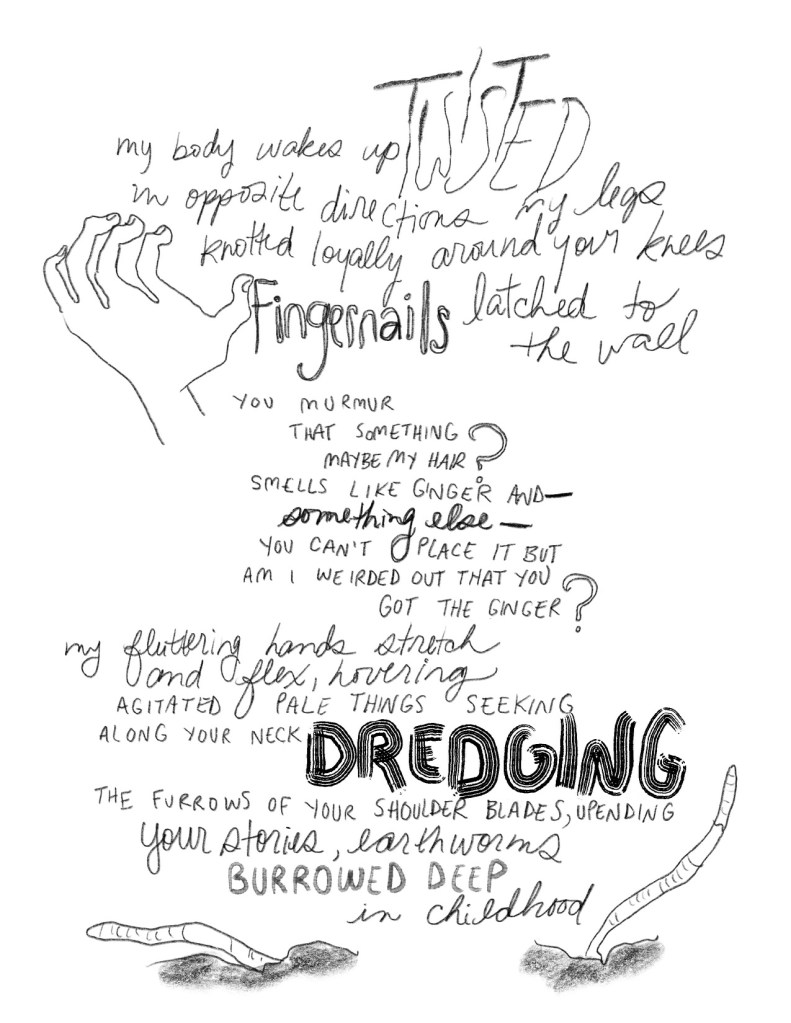 my body wakes up TWISTED
in opposite directions my legs
knotted loyally around your knees
Fingernails latched to
the wall
YOU MURMUR
THAT SOMETHING
MAYBE MY HAIR?
SMELLS LIKE GINGER AND—
something else—
YOU CAN'T PLACE IT BUT
AM I WEIRDED OUT THAT YOU
GOT THE GINGER?
my fluttering hands stretch
and flex, hovering
AGITATED PALE THINGS SEEKING
ALONG YOUR NECK DREDGING
THE FURROWS OF YOUR SHOULDER BLADES, UPENDING
your stories, earthworms
BURROWED DEEP
in childhood